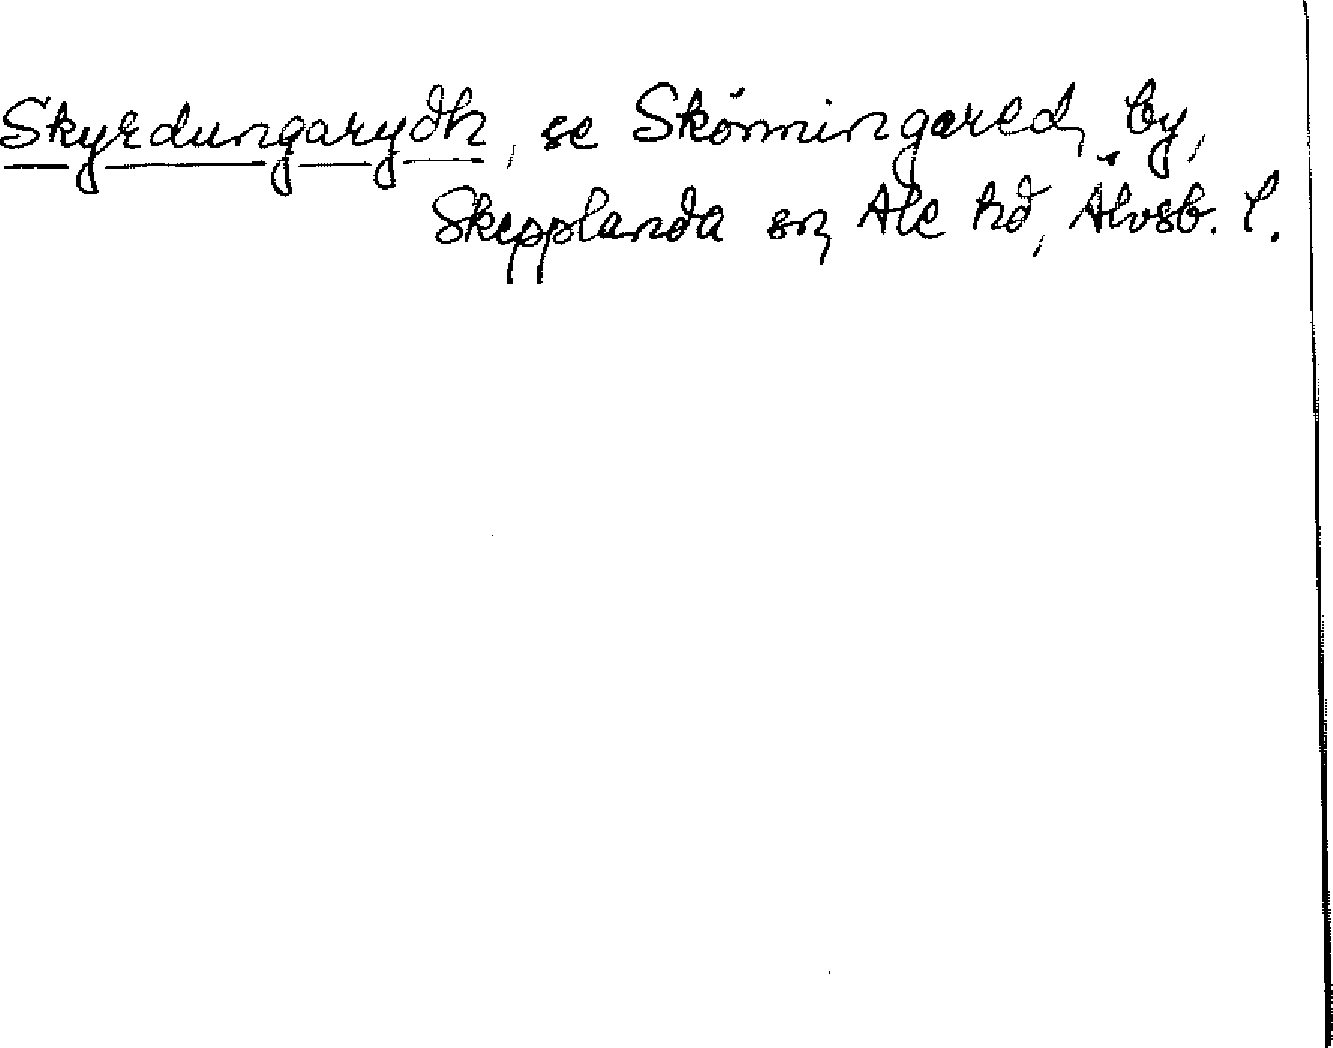 Skyrdungarydh, se Skörningared, by,
Skepplanda sn, Ale hd, Älvsb. l.